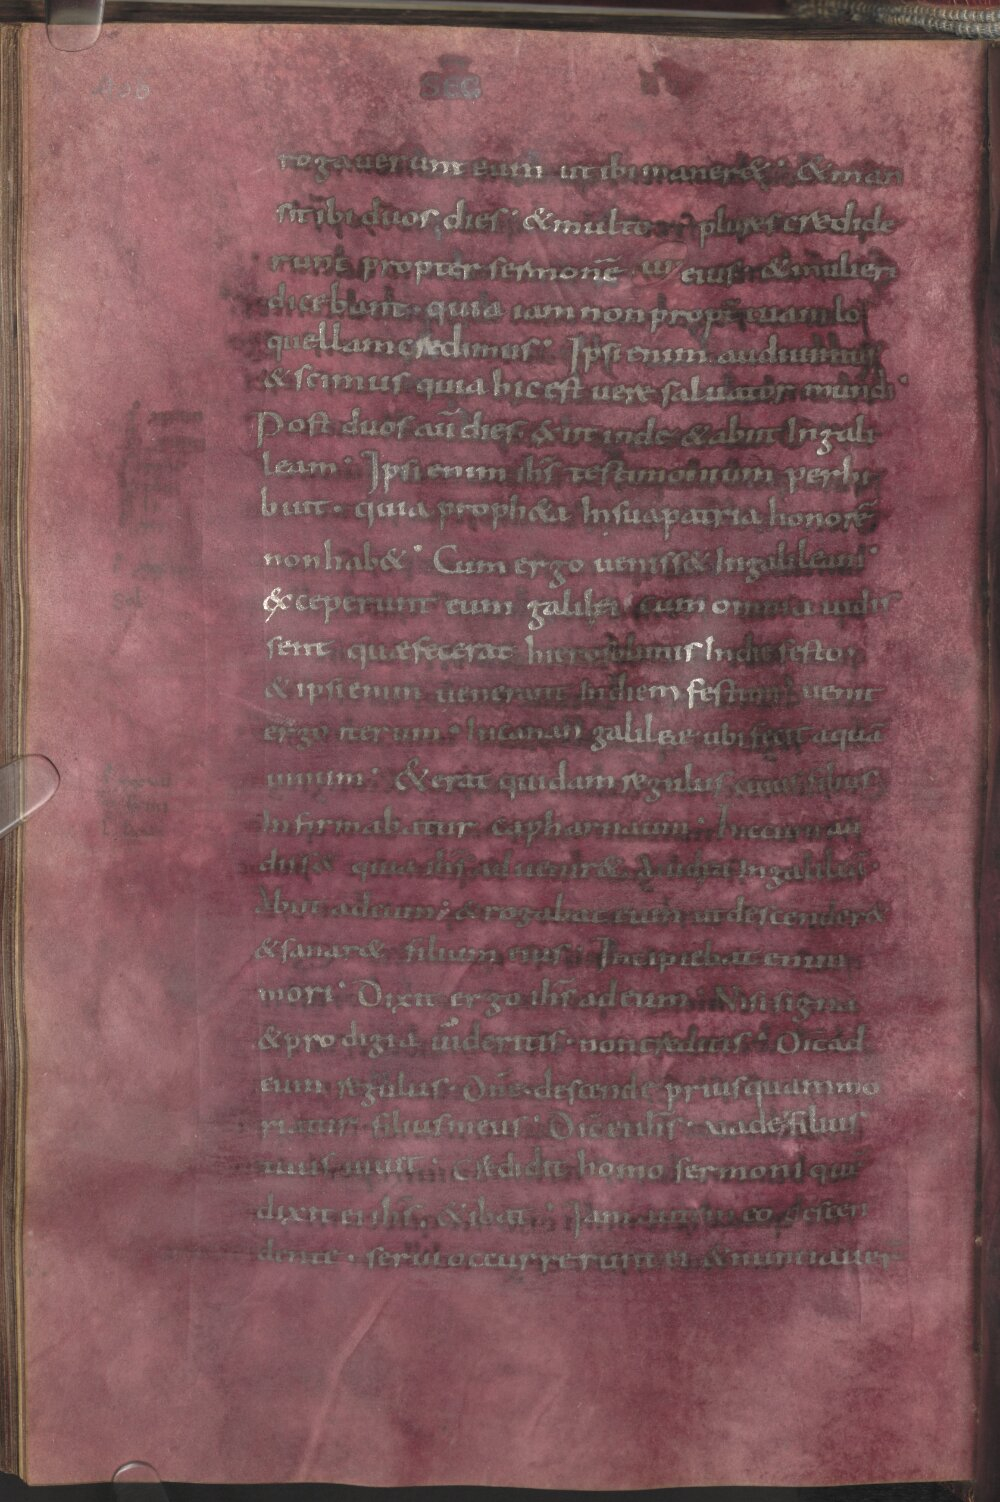 SEC
rogauerunt eum ut ibi maner&· &man
sit ibi duos dies· &multo plures credide
runt propter sermonē eius· &mulieri
dicebant· quia iam non propt̄ tuam lo
quellam credimus· Ipsi enim audiuimus
&scimus quia hic est uere saluator mundi·
Post duos aū dies· &iit inde &abiit Ingali
leam· Ipsi enim ihs̄ testimonium perhi
buit· quia proph&a Insua patria honorē
non hab&· Cum ergo ueniss& Ingalileam·
&ceperunt eum galilei cum omnia uidis
sent quae fecerat hierosolimis Indie festo
&ipsi enim uenerant Indiem festum· uenit
ergo iterum· Incanan galileae ubi fecit aquā
uinum· &erat quidam regulus cuius filius
Infirmabatur capharnaum· hic cum au
diss& quia ihs̄ aduenir& a iudea Ingalileā·
Abiit ad eum· &rogabat eum ut descender&
&sanar& filium eius· Incipiebat enim
mori· Dixit ergo ihs̄ ad eum Nisi signa
&prodigia uideritis· non creditis· Dic̄ ad
eum regulus· Dn̄e· descende priusquam mo
riatur filius meus· Dic̄ ei ihs̄· uade filius
tuus uiuit· Credidit homo sermoni quē
dixit ei ihs̄· &ibat· Iam autem eo descen
dente· serui occurrerunt ei &nuntiauer̄